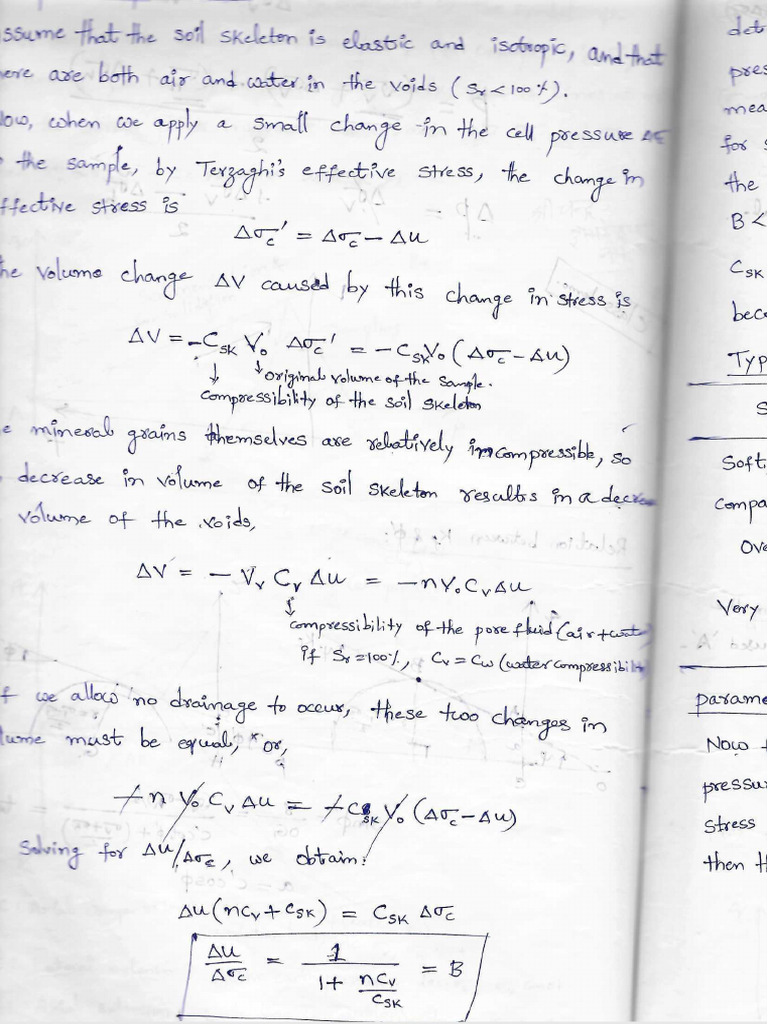 ssume that the soil skeleton is elastic and isotropic, and that
ere are both air and water in the voids (Sr<100%).
Now, when we apply a small change in the cell pressure Δσ
the sample, by Terzaghi's effective stress, the change in
ffective stress is
Δσc' = Δσc - Δu
he volume change ΔV caused by this change in stress is
ΔV = -CSK Vo Δσc' = -CSKVo (Δσc - Δu)
↓ original volume of the sample.
↓
compressibility of the soil skeleton
e mineral grains themselves are relatively incompressible, so
decrease in volume of the soil skeleton results in a decrea
volume of the voids,
ΔV = - Vv Cv Δu = -nVoCvΔu
↓
compressibility of the pore fluid (air + wate
if Sr=100%, Cv = Cw (water compressibili
f we allow no drainage to occur, these two changes in
lume must be equal, or,
-n Vo Cv Δu = -CSK Vo (Δσc - Δu)
Solving for Δu/Δσc, we obtain:
Δu(nCv + CSK) = CSK Δσc
Δu/Δσc = 1/(1 + nCv/CSK) = B
det
pres
mea
for s
the
B <
CSK
beca
Typ
S
Soft
Compa
Ove
Very
Parame
Now t
pressu
stress
then th